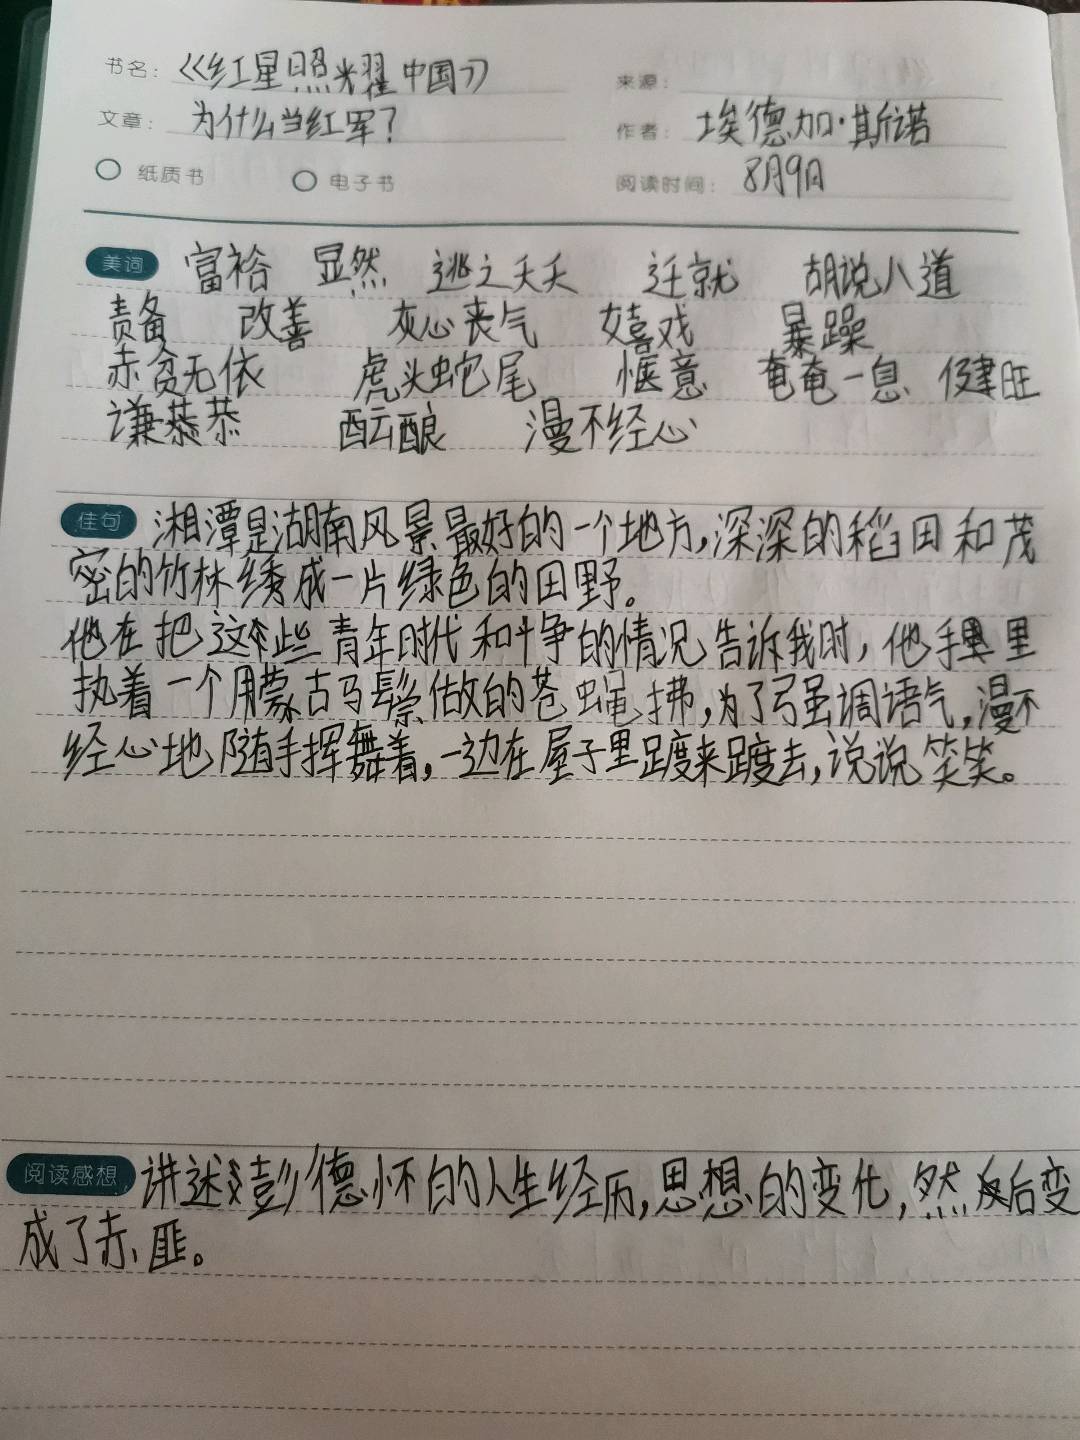 书名：《红星照耀中国》
来源：
文章：为什么当红军？
作者：埃德加·斯诺
纸质书 电子书
阅读时间：8月9日
美词 富裕 显然 逃之夭夭 迁就 胡说八道
责备 改善 灰心丧气 嬉戏 暴躁
赤贫无依 虎头蛇尾 惬意 奄奄一息 健旺
谦恭 酝酿 漫不经心
佳句 湘潭是湖南风景最好的一个地方,深深的稻田和茂
密的竹林绣成一片绿色的田野。
他在把这些青年时代和斗争的情况告诉我时,他手里
执着一个用蒙古马鬃做的苍蝇拂,为了强调语气,漫不
经心地随手挥舞着,一边在屋子里踱来踱去,说说笑笑。
阅读感想 讲述彭德怀的人生经历,思想的变化,然后变
成了赤匪。